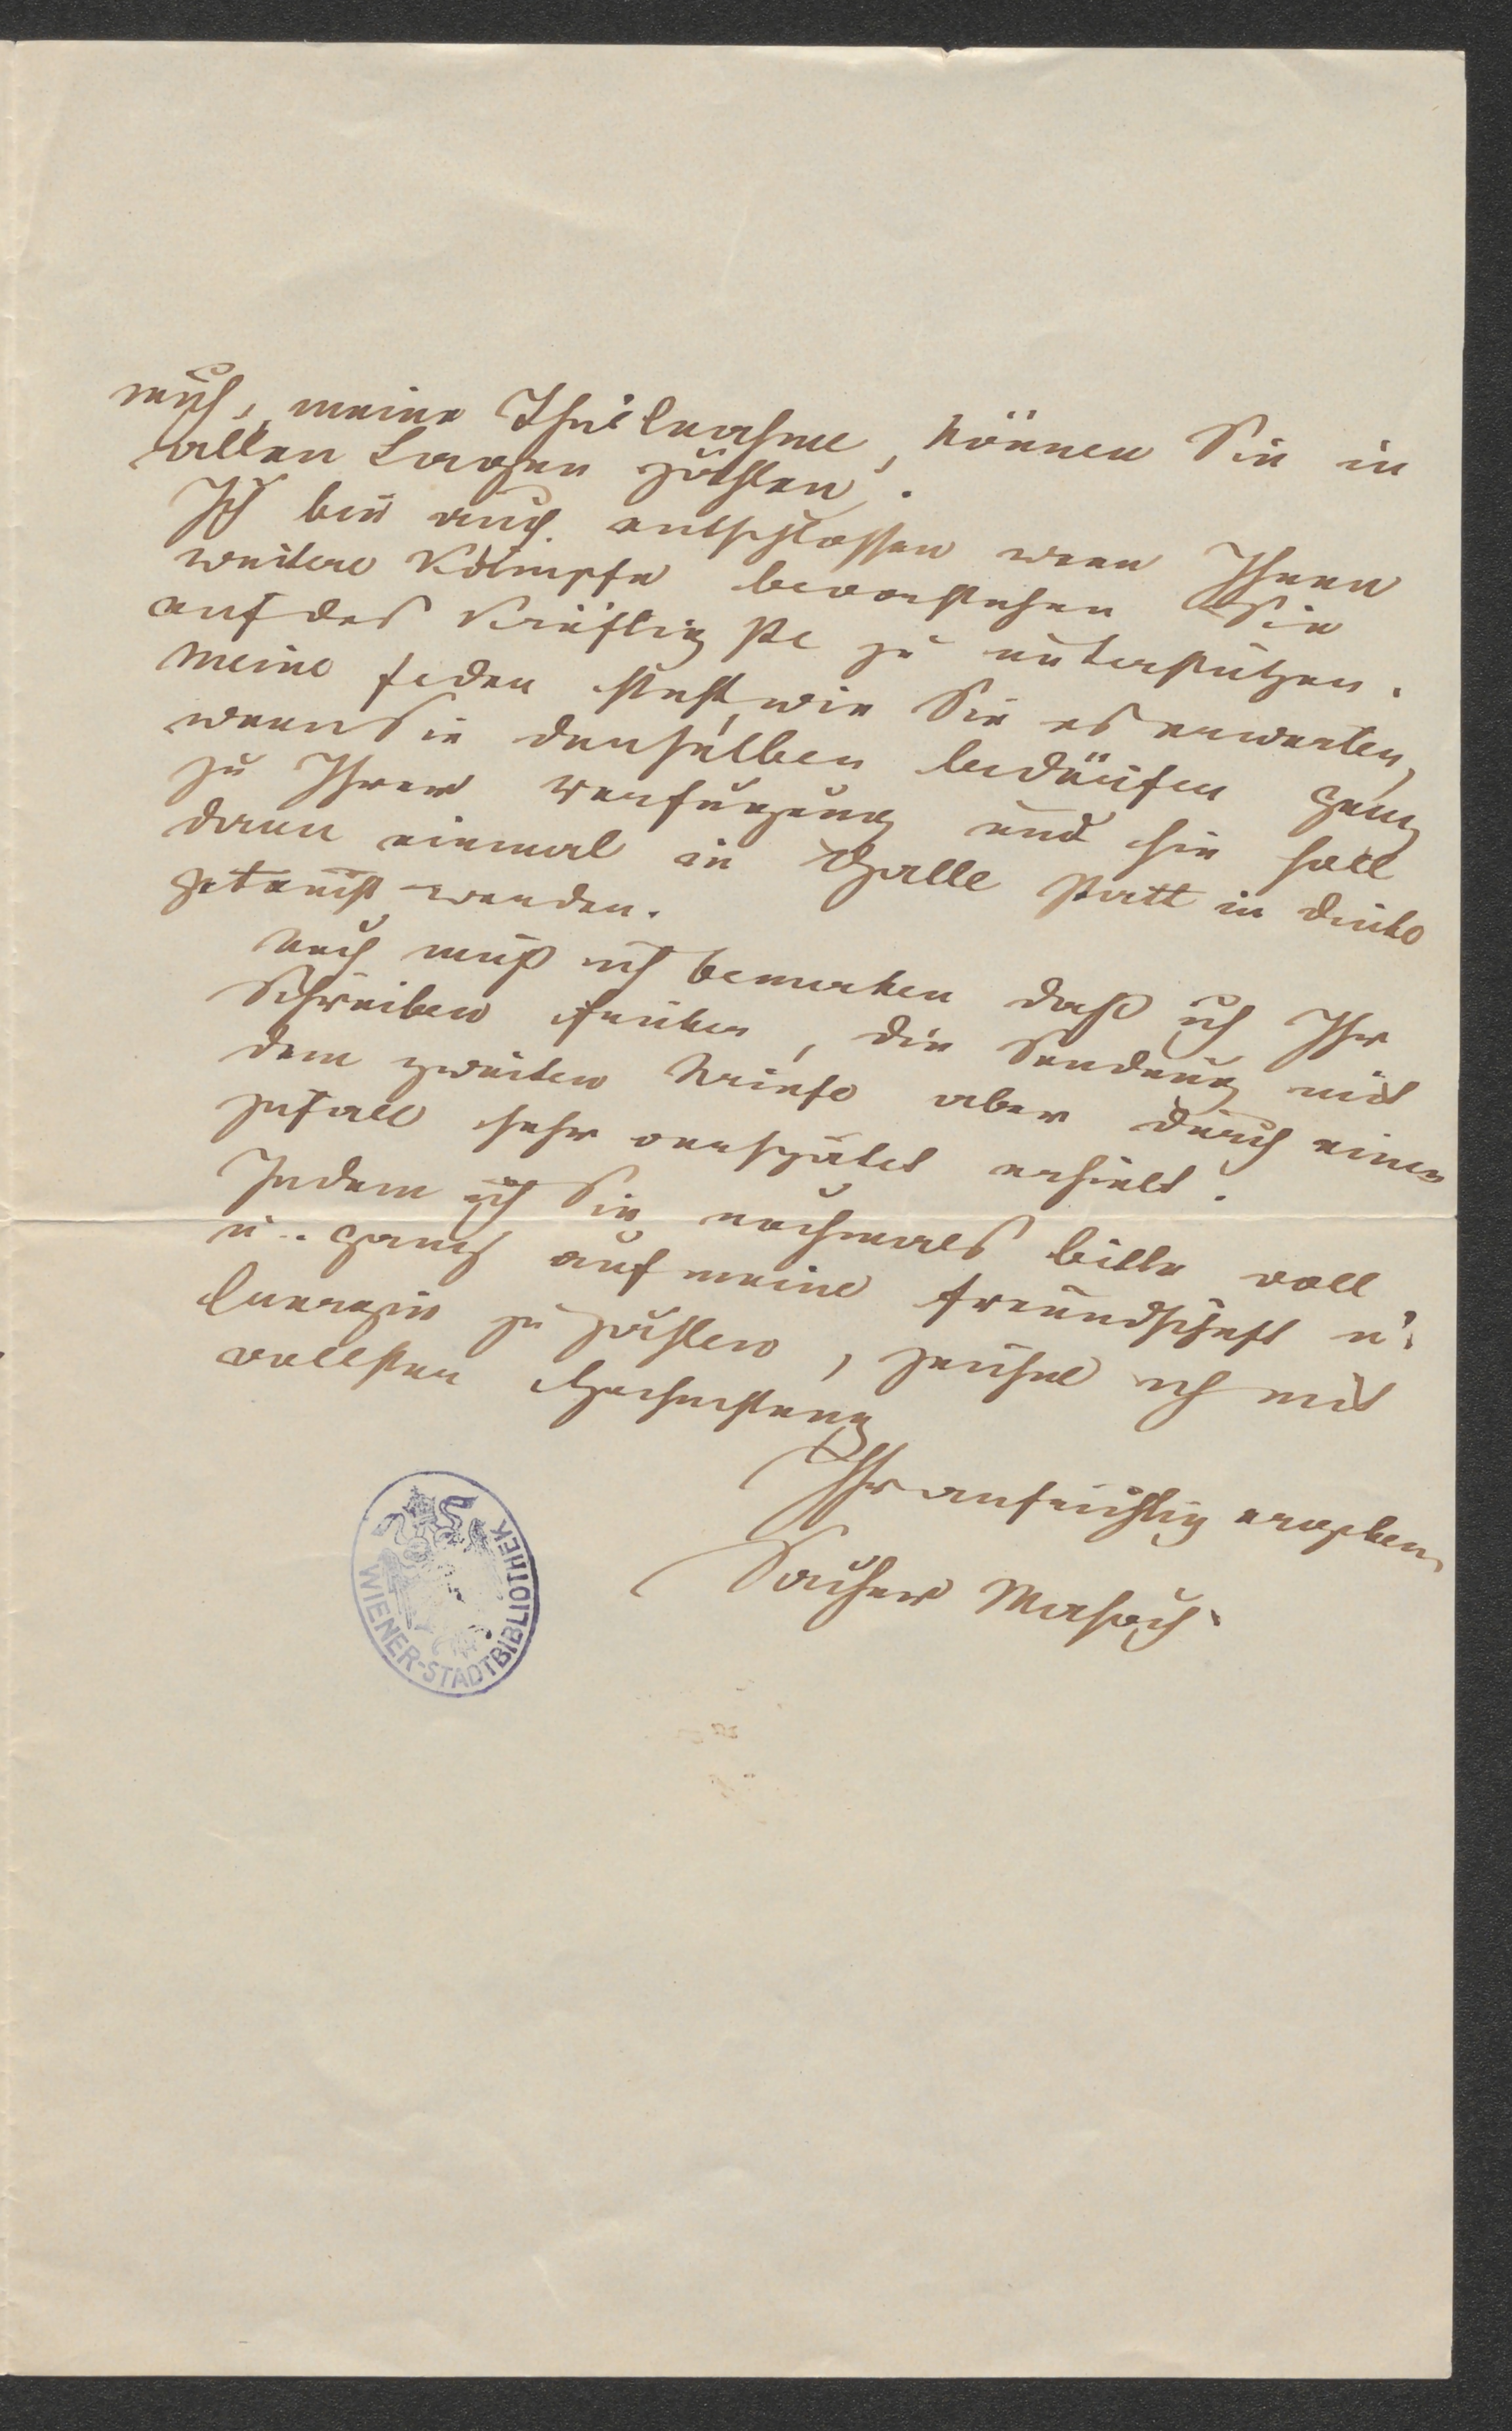 mich, meine Theilnahme, können Sie in
allen Lagen zählen.
Ich bin auch entschlossen wenn Ihnen
weitere Kämpfe bevorstehen Sie
auf das Kräftigste zu unterstützen.
Meine Feder steht, wie Sie es erwarten,
wenn Sie derselben bedürfen ganz
zu Ihrer Verfügung und sie soll
dann einmal in Galle statt in Tinte
getaucht werden.
Noch muß ich bemerken daß ich Ihr
Schreiben früher, die Sendung mit
dem zweiten Briefe aber durch einen
Zufall sehr verspätet erhielt.
Indem ich Sie nochmals bitte voll
u. ganz auf meine Freundschaft u.
Energie zu zählen, zeichne ich mit
vollster Hochachtung
Ihr aufrichtig ergebener
Sacher Masoch.
WIENER-STADTBIBLIOTHEK